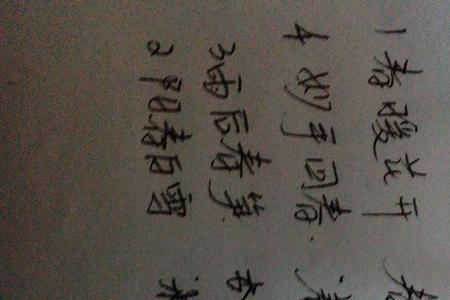 1春暖花开
4妙手回春
3雨后春笋
2阳春白雪